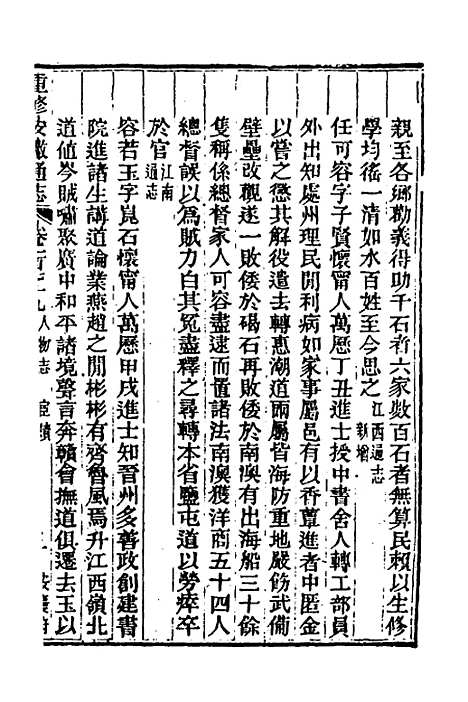 親至各鄉勸義得助千石者六家數百石者無算民賴以生修
學均徭一淸如水百姓至今思之江西通志新增
任可容字子賢懷甯人萬歷丁丑進士授中書舍人轉工部員
外出知處州理民閒利病如家事屬邑有以香蕈進者中匿金
以嘗之懲其解役遣去轉惠潮道兩屬皆海防重地嚴飭武備
壁壘改觀遂一敗倭於碣石再敗倭於南澳有出海船三十餘
隻稱係總督家人可容盡逮而置諸法南澳獲洋商五十四人
總督誤以爲賊力白其冤盡釋之尋轉本省鹽屯道以勞瘁卒
於官江南通志
容若玉字崑石懷甯人萬歷甲戌進士知晉州多善政創建書
院進諸生講道論業燕趙之閒彬彬有齊魯風焉升江西嶺北
道値岑賊嘯聚廣中和平諸境聲言奔贛會撫道俱遷去玉以
重修安徽通志 卷一百七十九人物志 宦績